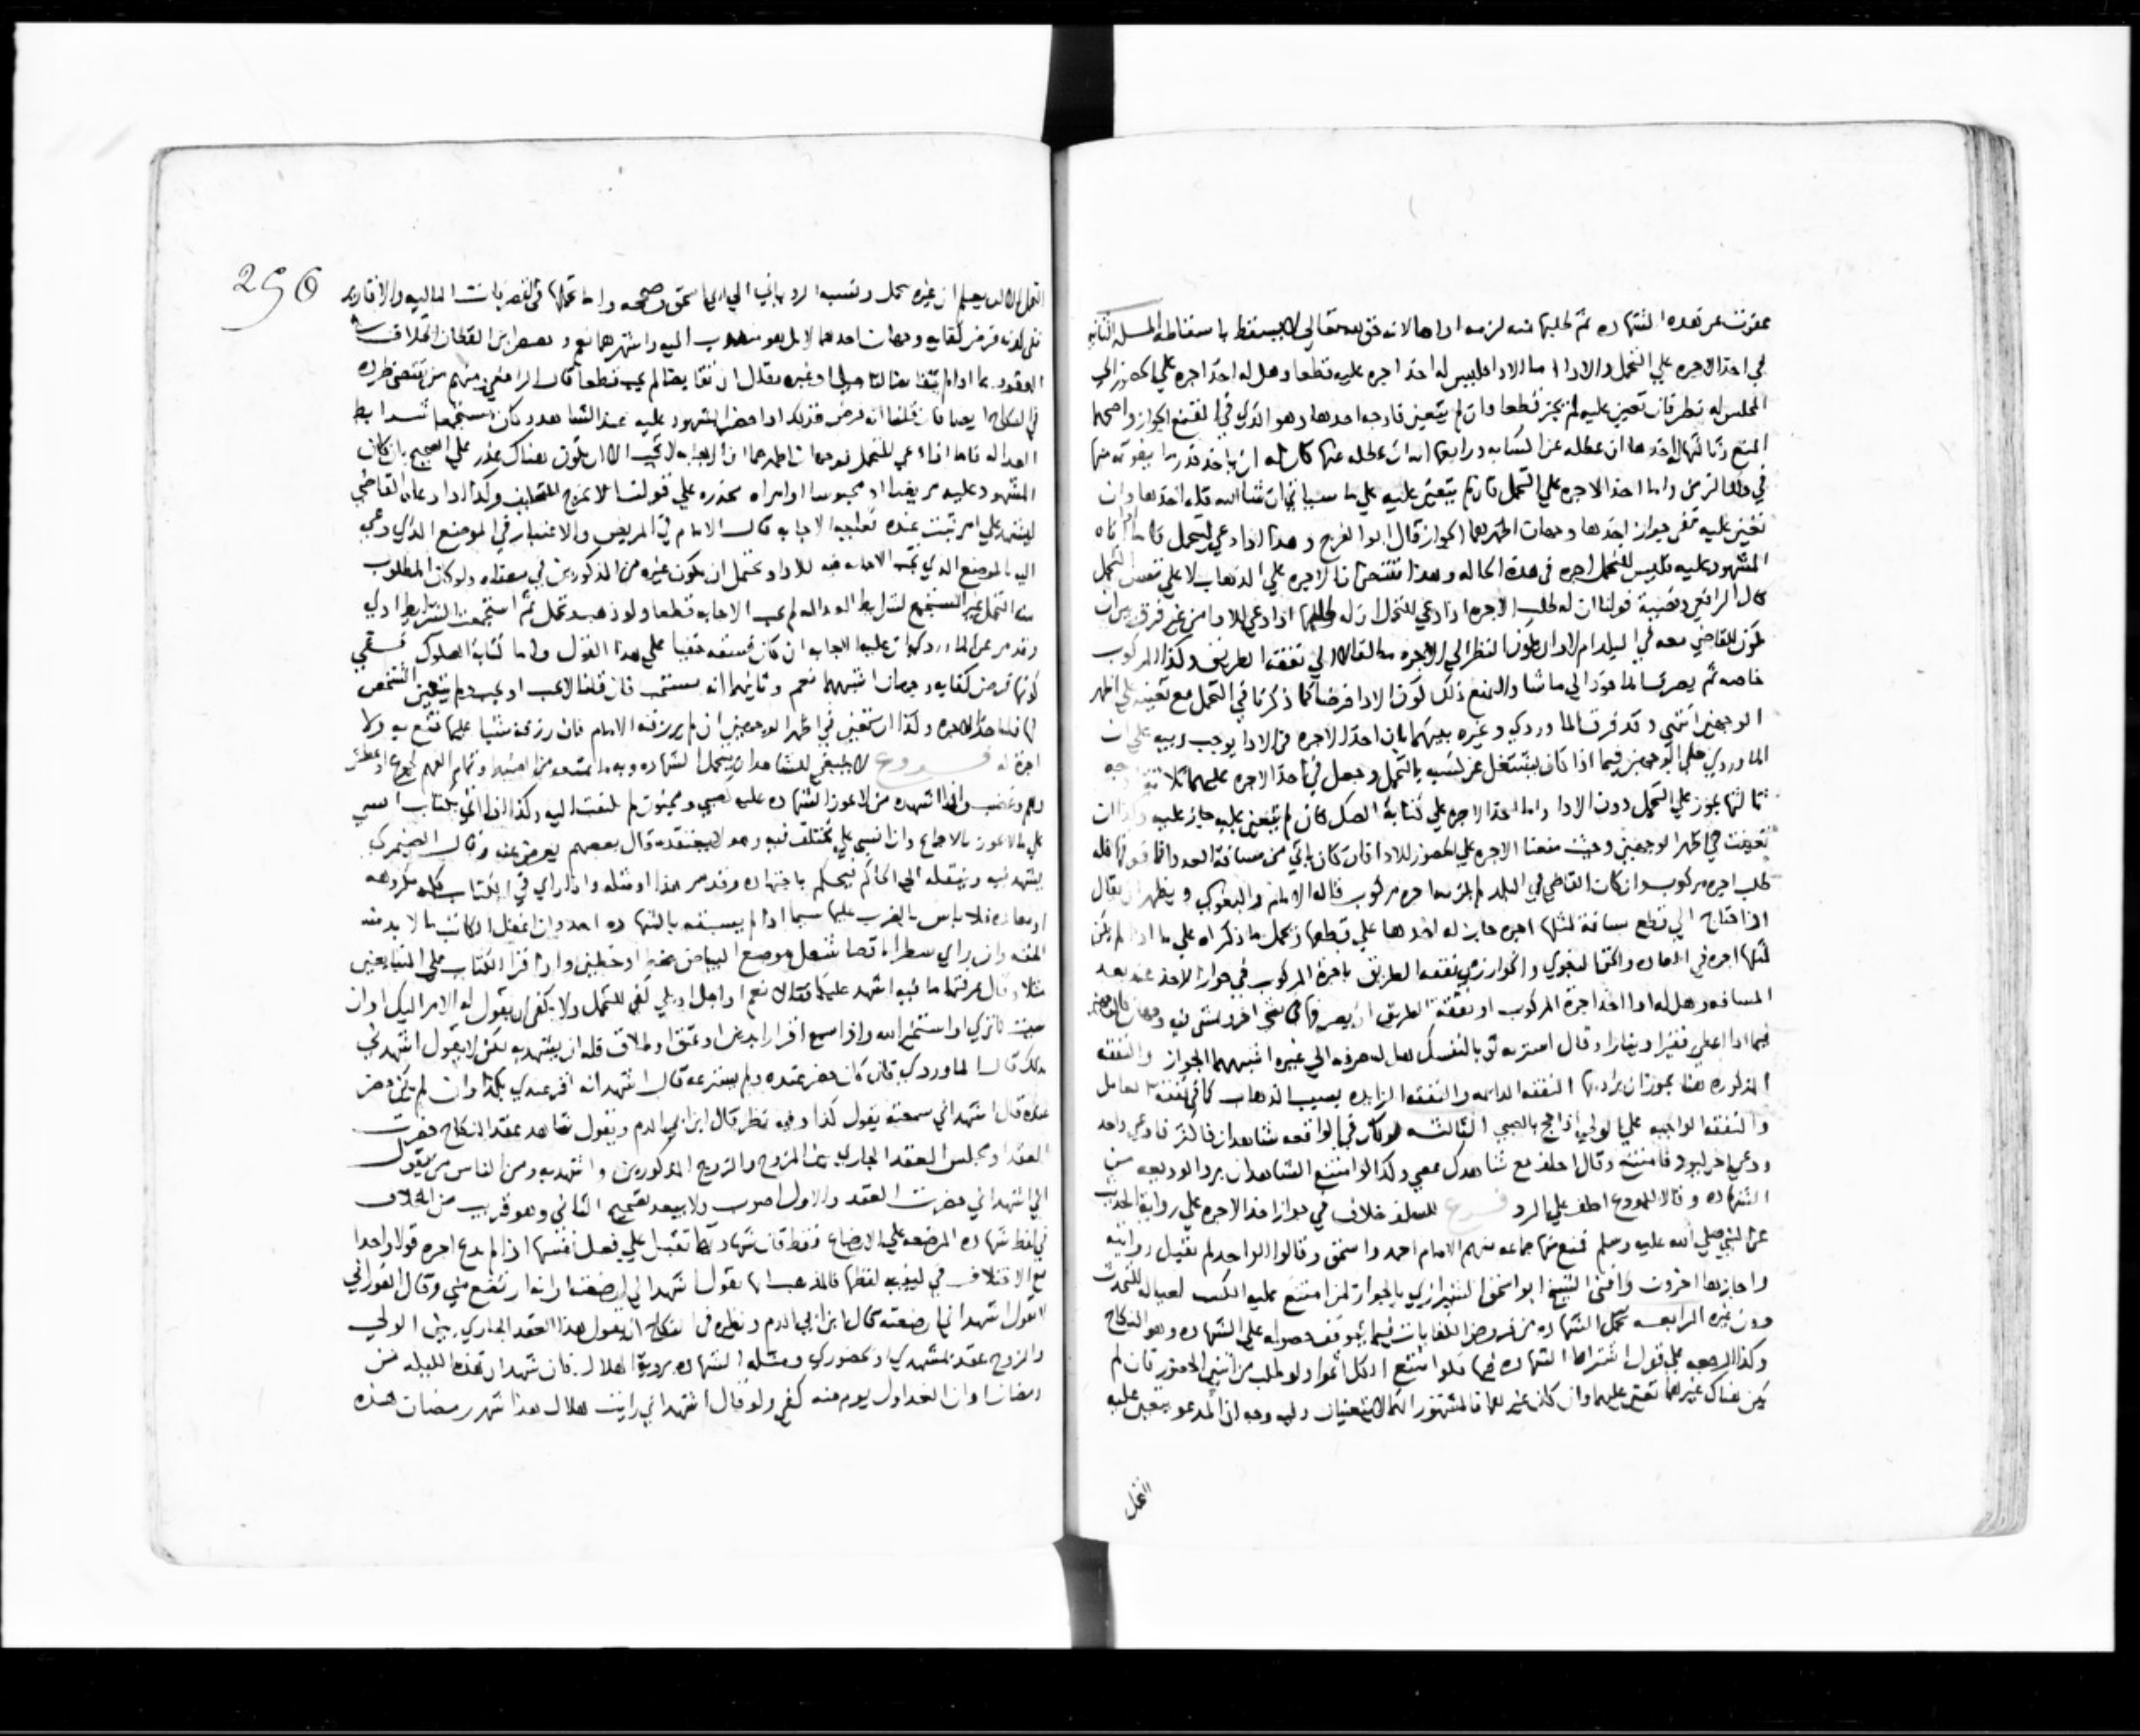 عفوت عن هذه الشهادة ثم طلبها منه لزمه اداها لانه حق لله تعالى لا يسقط باسقاطه المسلة الثانية
في اخذ الاجرة علي التحمل والادا اما الادا فليس له اخذ اجرة عليه قطعا وهل له اخذ اجرة علي الحضور الي
المجلس له نظر فان تعين عليه لم يجز قطعا وان لم يتعين فاوجه احدها وهو الذي في المقنع الجواز واصحها
المنع وثالثها ان عطله عن اكتسابه ورابعها انه ان عطله عنها كان له ان ياخذ قدر ما يفوته منها
في ذلك الزمن واما اخذ الاجرة علي التحمل فان لم يتعين عليه علي ما سياتي ان شا الله فله اخذها وان
تعين عليه ففي جواز اخذها وجهان اظهرهما الجواز قال ابو الفرج وهذا اذا دعي ليتحمل فاما اذا اتاه
المشهود عليه فليس للتحمل اجرة في هذه الحالة وهذا مقتضى ان الاجرة علي الذهاب لا علي نفس التحمل
قال الرافعي وقضية قولنا ان له طلب الاجرة اذا دعي للتحمل ان له طلبها اذا دعي للادا من غير فرق بين ان
يكون القاضي معه في البلد ام لا وان يكون النظر الي الاجرة مطلقا لا الي نفقة الطريق وكذا المركوب
خاصة ثم يصرفها الي ما شا والمنع ذلك لكون الادا فرضا كما ذكرنا في التحمل مع تعينه علي اظهر
الوجهين انتهى وقد فرق الماوردي وغيره بينهما بان اخذ الاجرة في الادا يوجب ريبة علي ان
الماوردي حكى الوجهين فيما اذا كان يشتغل عن كسبه بالتحمل وجعل في اخذ الاجرة عليهما ثلاثة اوجه
ثالثها يجوز علي التحمل دون الادا واما اخذ الاجرة علي كتابة الصك فان لم تتعين عليه جاز عليه وكذا ان
تعينت علي اظهر الوجهين وحيث منعنا الاجرة علي الحضور للادا فان كان ياتي من مسافة العدوا فما فوقها فله
طلب اجرة مركوب وان كان القاضي في البلد لم يلزمه اجرة مركوب قاله الامام والبغوي ويظهر ان يقال
اذا احتاج الي قطع مسافة لمثلها اجرة جاز له اخذها علي قطعها ويحمل ما ذكراه علي ما اذا لم يكن
لمثلها اجرة في العادة والحق البغوي والخوارزمي نفقة الطريق باجرة المركوب في جواز الاخذ عند بعد
المسافة وهل له اذا اخذ اجرة المركوب او نفقة الطريق ان يصرفها في شي اخر ويمشي فيه وجهان
فيما اذا اعطي فقيرا دينارا وقال اشتر به ثوبا لنفسك هل له صرفه الي غيره اشبههما الجواز والنفقة
المذكورة هنا يجوز ان يراد بها النفقة الدايمة والنفقة الزايدة بسبب الذهاب كما في نفقة العامل
والنفقة الواجبة علي الولي اذا حج بالصبي الثالثة لو كان في الواقعة شاهدان فاكثر فادعي واحد
ودعي اخر ليودي فامتنع وقال احلف مع شاهدك معي وكذا لو امتنع الشاهدان برد الوديعة من
الشهادة وقالا للمودع احلف علي الرد فرع للسلف خلاف في جواز اخذ الاجرة علي رواية الحديث
عن النبي صلي الله عليه وسلم فمنع منها جماعة منهم الامام احمد واسحق وقالوا الواحد لم تقبل روايته
واجازها اخرون وافتى الشيخ ابو اسحق الشيرازي بالجواز لمن امتنع عليه الكسب لعياله للتحديث
دون غيره الرابعة تحمل الشهادة من فروض الكفايات فيما يتوقف حصوله علي الشهادة وهو النكاح
وكذا الرجعة علي قول اشتراط الشهادة فيها فلو امتنع الكل اثموا ولو طلب من اثنين الحضور فان لم
يكن هناك غيرهما تعين عليهما وان كان غيرهما فالمشهور انهما لا يتعينان وفيه وجه ان المدعو يتعين عليه
التحمل
256
التحمل الا ان يعلم ان غيره تحمل ونسبه الروياني الي ابي اسحق وصححه واما تحملها في التصرفات المالية والاقارير
فهل هو فرض كفاية وجهان احدهما لا بل هو مندوب اليه واشهرهما نعم وخصص ابن القطان الخلاف
العقود بما اذا لم يتقابضا
في النكاح ايضا فان قلنا انه فرض فذلك اذا حضر المشهود عليه عند الشاهد وكان مستجمعا شرايط
العدالة فاما اذا دعي للتحمل فوجهان اظهرهما ان الاجابة لا تجب الا ان يكون هناك عذر علي الصحيح بان كان
المشهود عليه مريضا او محبوسا او امراة مخدرة علي قولنا لا تخرج للتحليف وكذا اذا دعاه القاضي
ليشهد علي امر ثبت عنده تجب الاجابة قال الامام في المريض والاعتبار في الموضع الذي دعي
اليه بالموضع الذي تجب الاجابة فيه للادا ويحتمل ان يكون غيره من المذكورين في معناه ولو كان المطلوب
منه التحمل غير مستجمع لشرايط العدالة لم تجب الاجابة قطعا ولو ذهب وتحمل ثم استجمعت الشرايط ادي
وقد مر عن الماوردي ان عليه الاجابة ان كان فسقه خفيا علي هذا القول واما كتابة الصكوك ففي
كونها فرض كفاية وجهان اشبههما نعم وثانيهما انه مستحب فان قلنا لا تجب او تجب ولم يتعين الشخص
لها فله اخذ الاجرة وكذا ان تعين في اظهر الوجهين ان لم يرزقه الامام فان رزقه شيا عليها قنع به ولا
اجرة له فروع لا ينبغي للشاهد ان يتحمل الشهادة وبه ما يمنعه من ضبطها وتمام الفهم كجوع او عطش
وهم وغضب واذا اشهده من لا تجوز الشهادة عليه كصبي ومجنون لم يلتفت اليه وكذا اذا اتي بكتاب انشي
علي ما لا يجوز بالاجماع وان انشي علي مختلف فيه وهو لا يعتقده قال بعضهم يعرض عنه وقال الصيمري
يشهد فيه وينقله الي الحاكم ليحكم باجتهاده وقد مر هذا او مثله واذا راي في الكتاب كلمة مكررة
او معادة فلا باس بالضرب عليها سيما اذا لم يسبقه بالشهادة احد وان اغفل الكاتب ما لا بد منه
الحقه وان راي سطرا ناقصا شغل موضع البياض بخط او خطين واذا قرا الكتاب علي المتبايعين
مثلا وقال عرفتما ما فيه اشهد عليكما فقالا نعم او اجل او بلي كفي للتحمل ولا يكفي ان يقول له الامر اليك او ان
شيت كما تري او استخر الله واذا سمع اقرارا بدين او عتق او طلاق فله ان يشهد به لكن لا يقول اشهدني
بذلك قال الماوردي فان كان حضر عنده ولم يسترعه قال اشهد انه اقر عندي بكذا وان لم يكن حضر
عنده قال اشهد اني سمعته يقول كذا وفيه نظر قال ابن ابي الدم ويقول شاهد عقد النكاح حضرت
العقد او مجلس العقد الجاري بين المزوج والزوج المذكورين واشهد به ومن الناس من يقول
اني اشهد اني حضرت العقد والاول اصوب ولا يبعد تصحيح الثاني وهو قريب من الخلاف
في لفظ شهادة المرضعة علي الارضاع فقط فان شهادتها تقبل علي فعل نفسها اذا لم تدع اجرة قولا واحدا
مع الاختلاف في كيفية لفظها فالمذهب انها تقول اشهد اني ارضعته او انه ارتضع مني وقال الفوراني
لا تقول اشهد اني ارضعته قال ابن ابي الدم ونظيره في النكاح ان يقول هذا العقد الجاري بين الولي
والزوج عقد بمشهدي او بحضوري ومثله الشهادة برؤية الهلال فان شهد ان هذه الليلة من
رمضان او ان الغد اول يوم منه كفي ولو قال اشهد اني رايت هلال هذا شهر رمضان هذه